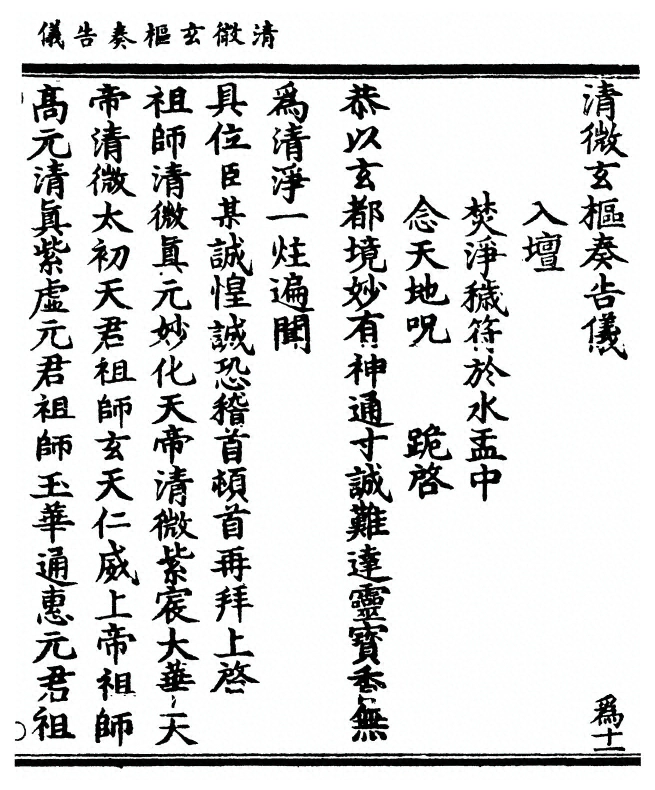 清微玄樞奏告儀
清微玄樞奏告儀
爲十一
入壇
焚淨穢符於水盂中
念天地呪 跪啓
恭以玄都境妙有神通寸誠難達靈寶香無
爲清淨一炷遍聞
具位臣某誠惶誠恐稽首頓首再拜上啓
祖師清微眞元妙化天帝清微紫宸大華天
帝清微太初天君祖師玄天仁威上帝祖師
高元清眞紫虛元君祖師玉華通惠元君祖